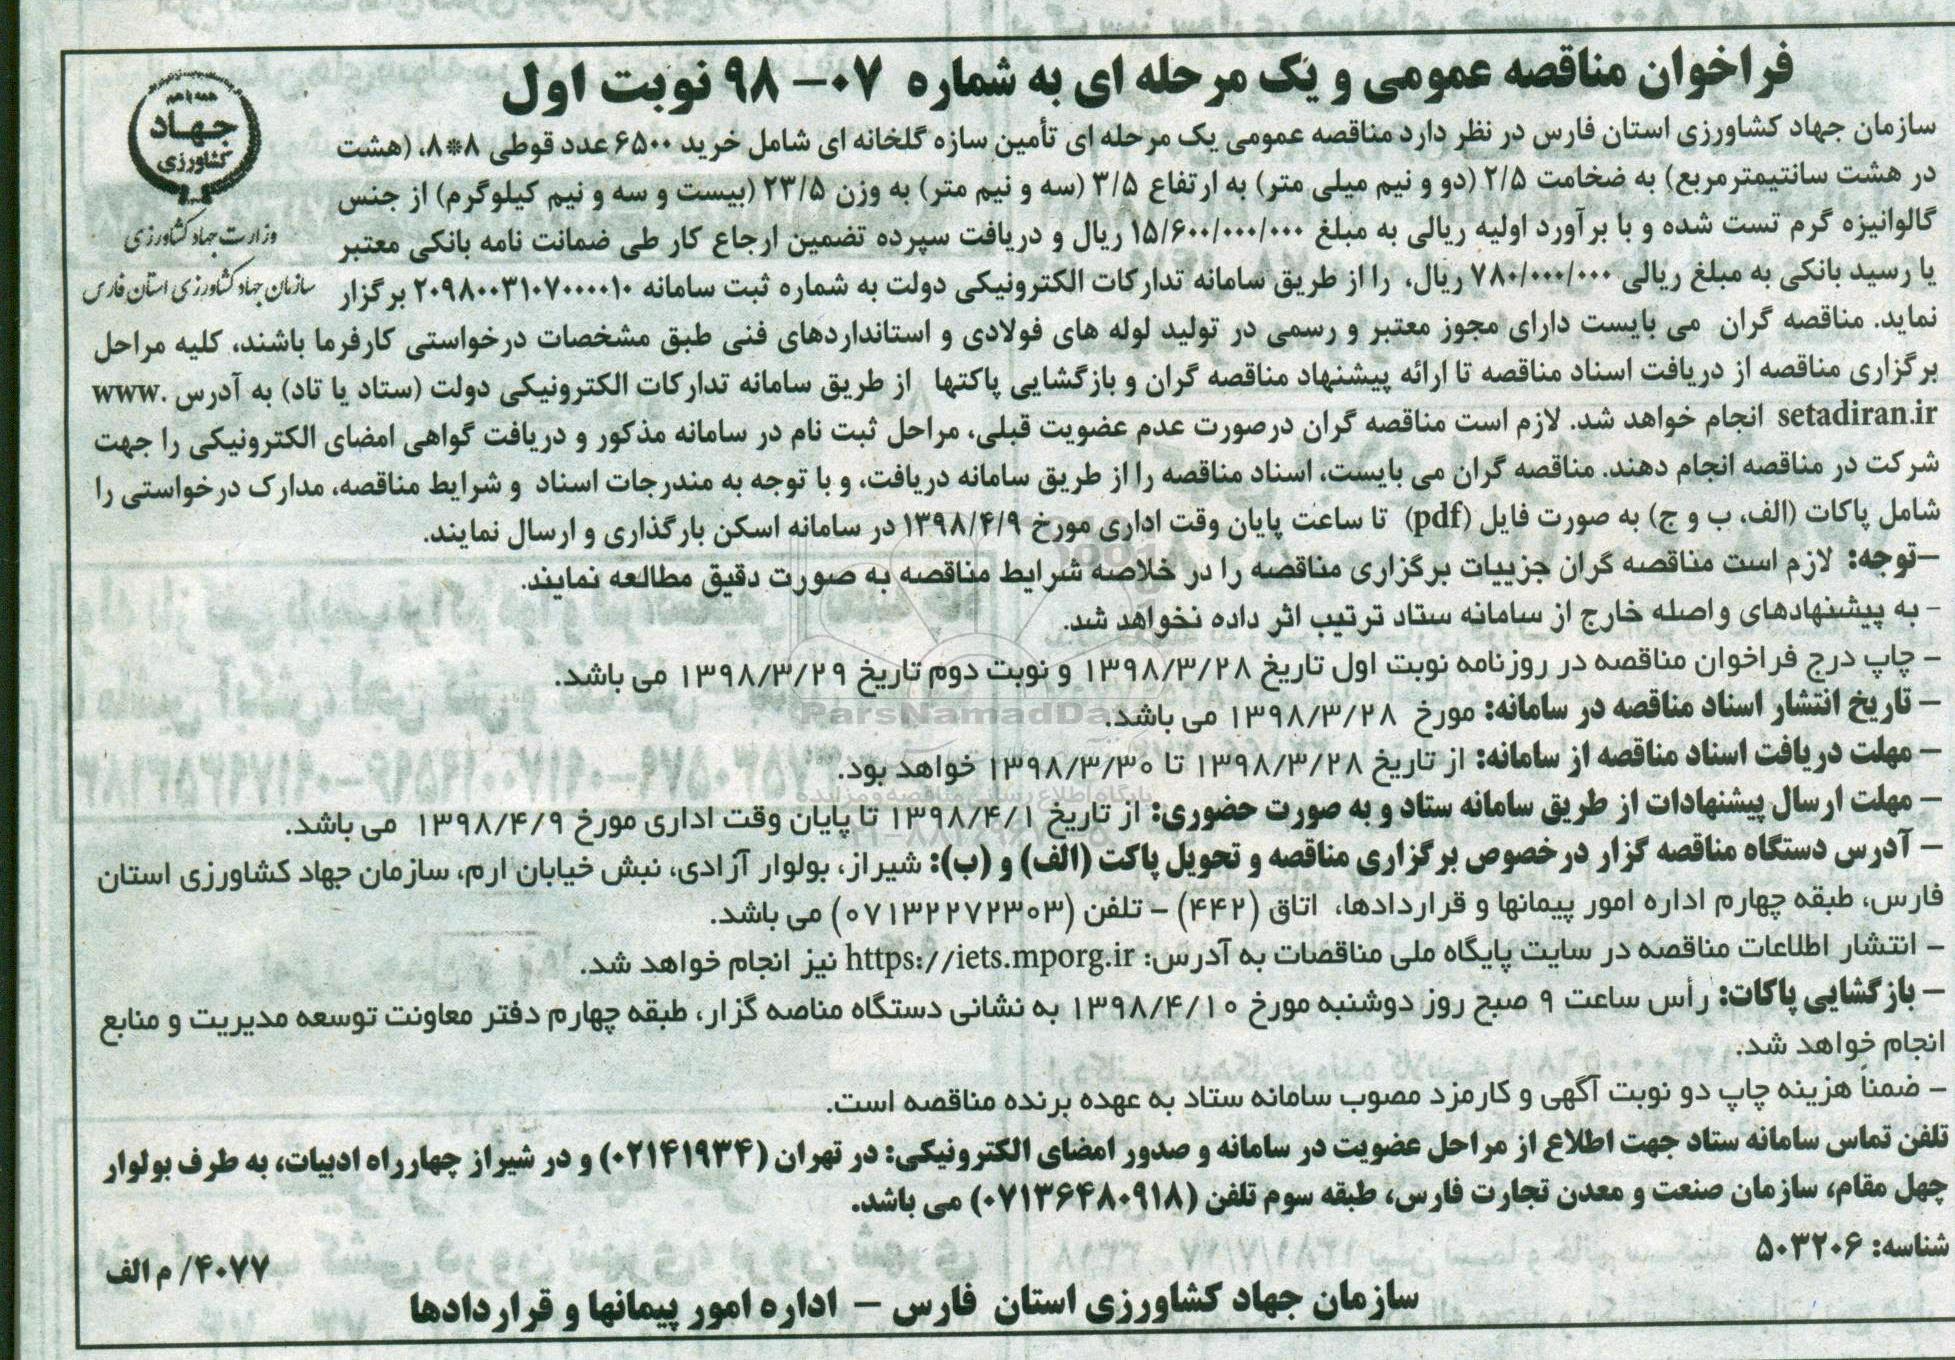 فراخوان مناقصه عمومی و یک مرحله ای به شماره ۰۷- ۹۸ نوبت اول
همه با هم
جهاد
کشاورزی
وزارت جهاد کشاورزی
سازمان جهاد کشاورزی استان فارس
سازمان جهاد کشاورزی استان فارس در نظر دارد مناقصه عمومی یک مرحله ای تأمین سازه گلخانه ای شامل خرید ۶۵۰۰ عدد قوطی ۸*۸، (هشت
در هشت سانتیمترمربع) به ضخامت ۲/۵ (دو و نیم میلی متر) به ارتفاع ۳/۵ (سه و نیم متر) به وزن ۲۳/۵ (بیست و سه و نیم کیلوگرم) از جنس
گالوانیزه گرم تست شده و با برآورد اولیه ریالی به مبلغ ۱۵/۶۰۰/۰۰۰/۰۰۰ ریال و دریافت سپرده تضمین ارجاع کار طی ضمانت نامه بانکی معتبر
یا رسید بانکی به مبلغ ریالی ۷۸۰/۰۰۰/۰۰۰ ریال، را از طریق سامانه تدارکات الکترونیکی دولت به شماره ثبت سامانه ۲۰۹۸۰۰۳۱۰۷۰۰۰۰۱۰ برگزار
نماید. مناقصه گران می بایست دارای مجوز معتبر و رسمی در تولید لوله های فولادی و استانداردهای فنی طبق مشخصات درخواستی کارفرما باشند، کلیه مراحل
برگزاری مناقصه از دریافت اسناد مناقصه تا ارائه پیشنهاد مناقصه گران و بازگشایی پاکتها از طریق سامانه تدارکات الکترونیکی دولت (ستاد یا تاد) به آدرس www.
setadiran.ir انجام خواهد شد. لازم است مناقصه گران درصورت عدم عضویت قبلی، مراحل ثبت نام در سامانه مذکور و دریافت گواهی امضای الکترونیکی را جهت
شرکت در مناقصه انجام دهند. مناقصه گران می بایست، اسناد مناقصه را از طریق سامانه دریافت، و با توجه به مندرجات اسناد و شرایط مناقصه، مدارک درخواستی را
شامل پاکات (الف، ب و ج) به صورت فایل (pdf) تا ساعت پایان وقت اداری مورخ ۱۳۹۸/۴/۹ در سامانه اسکن بارگذاری و ارسال نمایند.
-توجه: لازم است مناقصه گران جزییات برگزاری مناقصه را در خلاصه شرایط مناقصه به صورت دقیق مطالعه نمایند.
- به پیشنهادهای واصله خارج از سامانه ستاد ترتیب اثر داده نخواهد شد.
- چاپ درج فراخوان مناقصه در روزنامه نوبت اول تاریخ ۱۳۹۸/۳/۲۸ و نوبت دوم تاریخ ۱۳۹۸/۳/۲۹ می باشد.
- تاریخ انتشار اسناد مناقصه در سامانه: مورخ ۱۳۹۸/۳/۲۸ می باشد.
ParsNamadData
- مهلت دریافت اسناد مناقصه از سامانه: از تاریخ ۱۳۹۸/۳/۲۸ تا ۱۳۹۸/۳/۳۰ خواهد بود.
پایگاه اطلاع رسانی مناقصه و مزایده
- مهلت ارسال پیشنهادات از طریق سامانه ستاد و به صورت حضوری: از تاریخ ۱۳۹۸/۴/۱ تا پایان وقت اداری مورخ ۱۳۹۸/۴/۹ می باشد.
- آدرس دستگاه مناقصه گزار درخصوص برگزاری مناقصه و تحویل پاکت (الف) و (ب): شیراز، بولوار آزادی، نبش خیابان ارم، سازمان جهاد کشاورزی استان
فارس، طبقه چهارم اداره امور پیمانها و قراردادها، اتاق (۴۴۲) – تلفن (۰۷۱۳۲۲۷۲۳۰۳) می باشد.
- انتشار اطلاعات مناقصه در سایت پایگاه ملی مناقصات به آدرس: https://iets.mporg.ir نیز انجام خواهد شد.
- بازگشایی پاکات: رأس ساعت ۹ صبح روز دوشنبه مورخ ۱۳۹۸/۴/۱۰ به نشانی دستگاه مناصه گزار، طبقه چهارم دفتر معاونت توسعه مدیریت و منابع
انجام خواهد شد.
- ضمناً هزینه چاپ دو نوبت آگهی و کارمزد مصوب سامانه ستاد به عهده برنده مناقصه است.
تلفن تماس سامانه ستاد جهت اطلاع از مراحل عضویت در سامانه و صدور امضای الکترونیکی: در تهران (۰۲۱۴۱۹۳۴) و در شیراز چهارراه ادبیات، به طرف بولوار
چهل مقام، سازمان صنعت و معدن تجارت فارس، طبقه سوم تلفن (۰۷۱۳۶۴۸۰۹۱۸) می باشد.
شناسه: ۵۰۳۲۰۶
۴۰۷۷/ م الف
سازمان جهاد کشاورزی استان فارس – اداره امور پیمانها و قراردادها